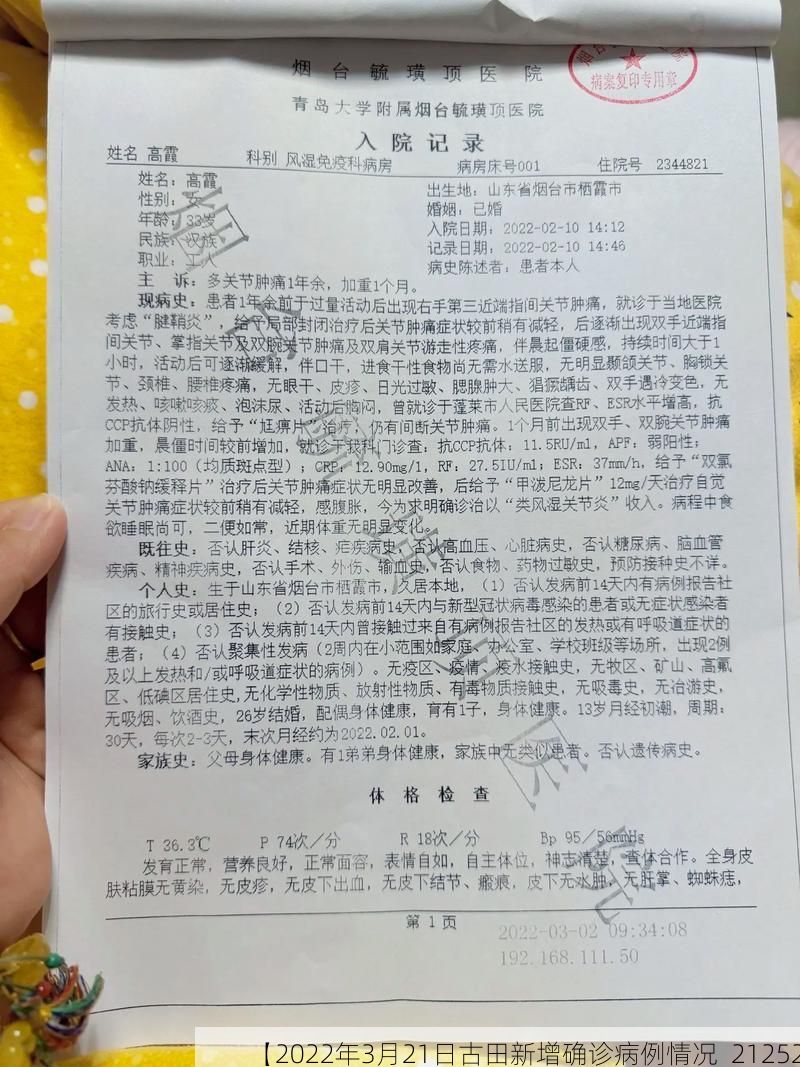 烟台毓璜顶医院
病案复印专用章
青岛大学附属烟台毓璜顶医院
入院记录
姓名 高霞 科别 风湿免疫科病房 病房床号001 住院号 2344821
姓名：高霞 出生地：山东省烟台市栖霞市
性别：女 婚姻：已婚
年龄：33岁 入院日期：2022-02-10 14:12
民族：汉族 记录日期：2022-02-10 14:46
职业：工人 病史陈述者：患者本人
主 诉：多关节肿痛1年余，加重1个月。
现病史：患者1年余前于过量活动后出现右手第三近端指间关节肿痛，就诊于当地医院
考虑“腱鞘炎”，给予局部封闭治疗后关节肿痛症状较前稍有减轻，后逐渐出现双手近端指
间关节、掌指关节及双腕关节肿痛及双肩关节游走性疼痛，伴晨起僵硬感，持续时间大于1
小时，活动后可逐渐缓解，伴口干，进食干性食物尚无需水送服，无明显颞颌关节、胸锁关
节、颈椎、腰椎疼痛，无眼干、皮疹、日光过敏、腮腺肿大、猖獗龋齿、双手遇冷变色，无
发热、咳嗽咳痰、泡沫尿、活动后胸闷，曾就诊于蓬莱市人民医院查RF、ESR水平增高，抗
CCP抗体阴性，给予“尪痹片”治疗，仍有间断关节肿痛。1个月前出现双手、双腕关节肿痛
加重，晨僵时间较前增加，就诊于我科门诊查：抗CCP抗体：11.5RU/ml，APF：弱阳性；
ANA：1:100（均质斑点型）；CRP：12.90mg/l，RF：27.5IU/ml；ESR：37mm/h，给予“双氯
芬酸钠缓释片”治疗后关节肿痛症状无明显改善，后给予“甲泼尼龙片”12mg/天治疗自觉
关节肿痛症状较前稍有减轻，感腹胀，今为求明确诊治以“类风湿关节炎”收入。病程中食
欲睡眠尚可，二便如常，近期体重无明显变化。
既往史：否认肝炎、结核、疟疾病史，否认高血压、心脏病史，否认糖尿病、脑血管
疾病、精神疾病史，否认手术、外伤、输血史，否认食物、药物过敏史，预防接种史不详。
个人史：生于山东省烟台市栖霞市，久居本地，（1）否认发病前14天内有病例报告社
区的旅行史或居住史；（2）否认发病前14天内与新型冠状病毒感染的患者或无症状感染者
有接触史；（3）否认发病前14天内曾接触过来自有病例报告社区的发热或有呼吸道症状的
患者；（4）否认聚集性发病（2周内在小范围如家庭、办公室、学校班级等场所，出现2例
及以上发热和/或呼吸道症状的病例）。无疫区、疫情、疫水接触史，无牧区、矿山、高氟
区、低碘区居住史，无化学性物质、放射性物质、有毒物质接触史，无吸毒史，无冶游史，
无吸烟、饮酒史，26岁结婚，配偶身体健康，育有1子，身体健康。13岁月经初潮，周期：
30天，每次2-3天，末次月经约为2022.02.01。
家族史：父母身体健康。有1弟弟身体健康，家族中无类似患者。否认遗传病史。
体格检查
T 36.3℃ P 74次／分 R 18次／分 Bp 95／56mmHg
发育正常，营养良好，正常面容，表情自如，自主体位，神志清楚，查体合作。全身皮
肤粘膜无黄染，无皮疹，无皮下出血，无皮下结节、瘢痕，皮下无水肿，无肝掌、蜘蛛痣，
第 1 页
2022-03-02 09:34:08
192.168.111.50
【2022年3月21日古田新增确诊病例情况 21252